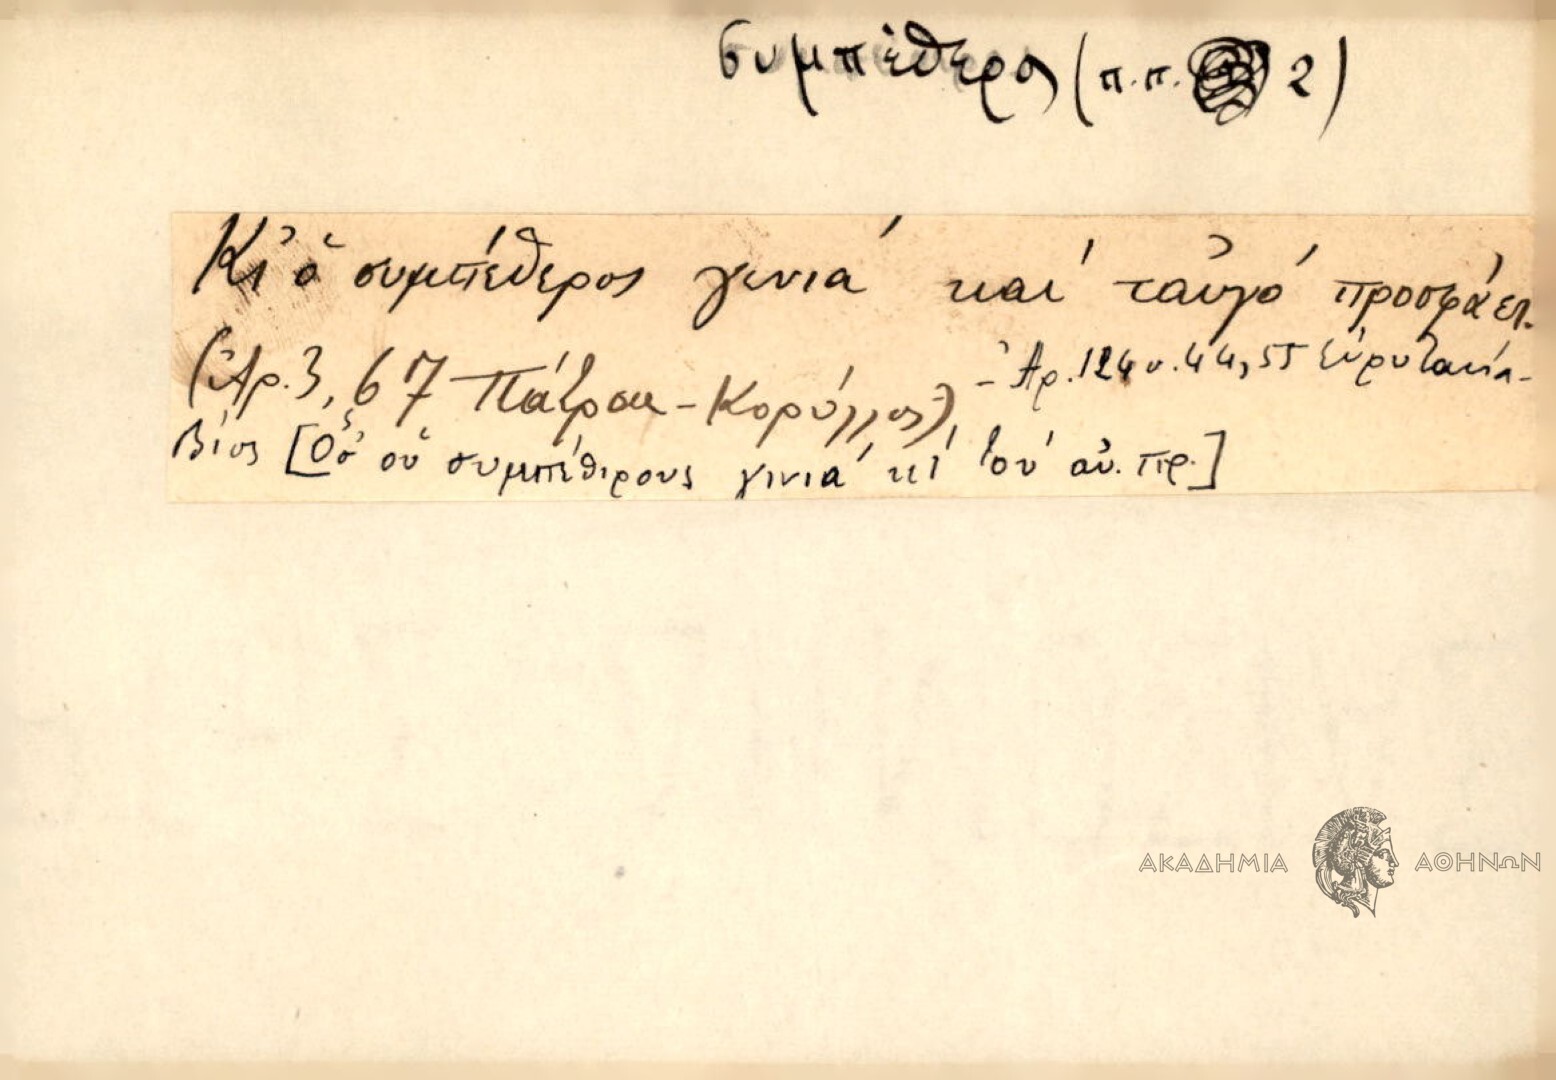 συμπέθερος (π.π. 2)
Κι' ὁ συμπέθερος γενιά καί ταὐγό προσφάει.
(Ἀρ. 3, 67 Πάτραι - Κορύλλος) - Ἀρ. 124 ν. 44, 55 Εὐρυτανία -
Βίος [οὑ συμπέθιρους γινιά κί τού αὐ. πρ.]
ΑΚΑΔΗΜΙΑ ΑΘΗΝΩΝ